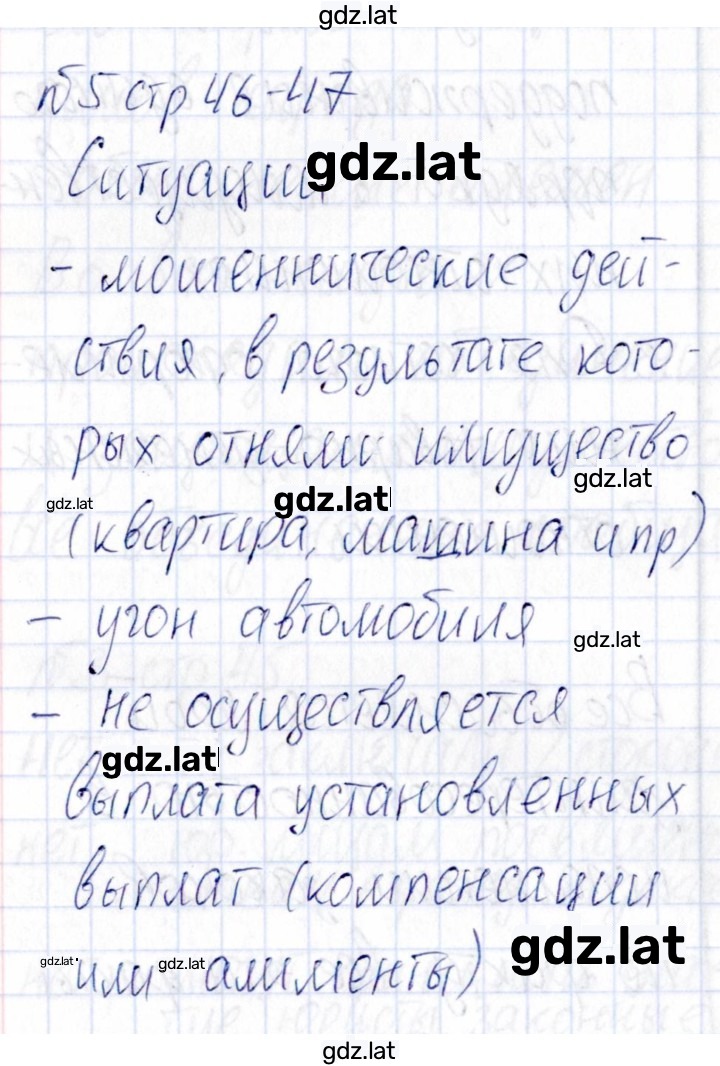 gdz.lat
№5 стр 46-47
Ситуации gdz.lat
- мошеннические дей-
ствия, в результате кото-
рых отняли имущество
gdz.lat gdz.lat gdz.lat
(квартира, машина и пр)
- угон автомобиля
gdz.lat
- не осуществляется
gdz.lat
выплата установленных
выплат (компенсации
gdz.lat
gdz.lat или gdz.lat алименты)
gdz.lat